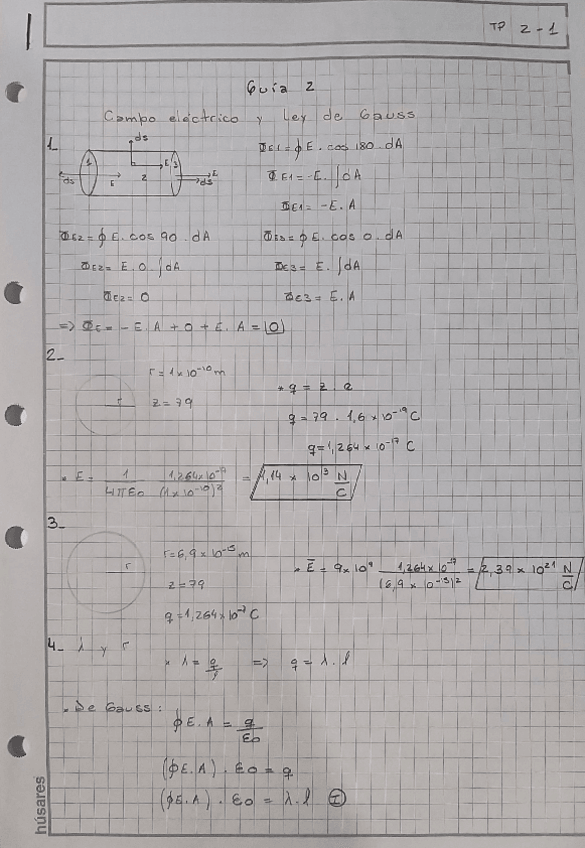 TP 2-1
Guía 2
Campo eléctrico y Ley de Gauss
1-
ds
1 E 2 E 3 E
ds ds
ΦE1 = ∮ E . cos 180 . dA
ΦE1 = -E . ∫dA
ΦE1 = -E . A
ΦE2 = ∮ E . cos 90 . dA
ΦE2 = E . 0 ∫dA
ΦE2 = 0
ΦE3 = ∮ E . cos 0 . dA
ΦE3 = E . ∫dA
ΦE3 = E . A
=> ΦE = - E . A + 0 + E . A = 0
2-
r
r = 1 x 10⁻¹⁰ m
z = 79
* q = z . e
q = 79 . 1,6 x 10⁻¹⁹ C
q = 1,264 x 10⁻¹⁷ C
• E = 1/4πE0 1,264x10⁻¹⁷/(1x10⁻¹⁰)² = 1,14 x 10¹³ N/C
3-
r
r = 6,9 x 10⁻¹⁵ m
z = 79
q = 1,264 x 10⁻¹⁷ C
• E = 9x10⁹ 1,264x10⁻¹⁷/(6,9 x 10⁻¹⁵)² = 2,39 x 10²¹ N/C
4- λ y r
* λ = q/l => q = λ . l
• De Gauss:
∮ E . A = q/E0
(∮ E . A) . E0 = q
(∮ E . A) . E0 = λ . l I
húsares